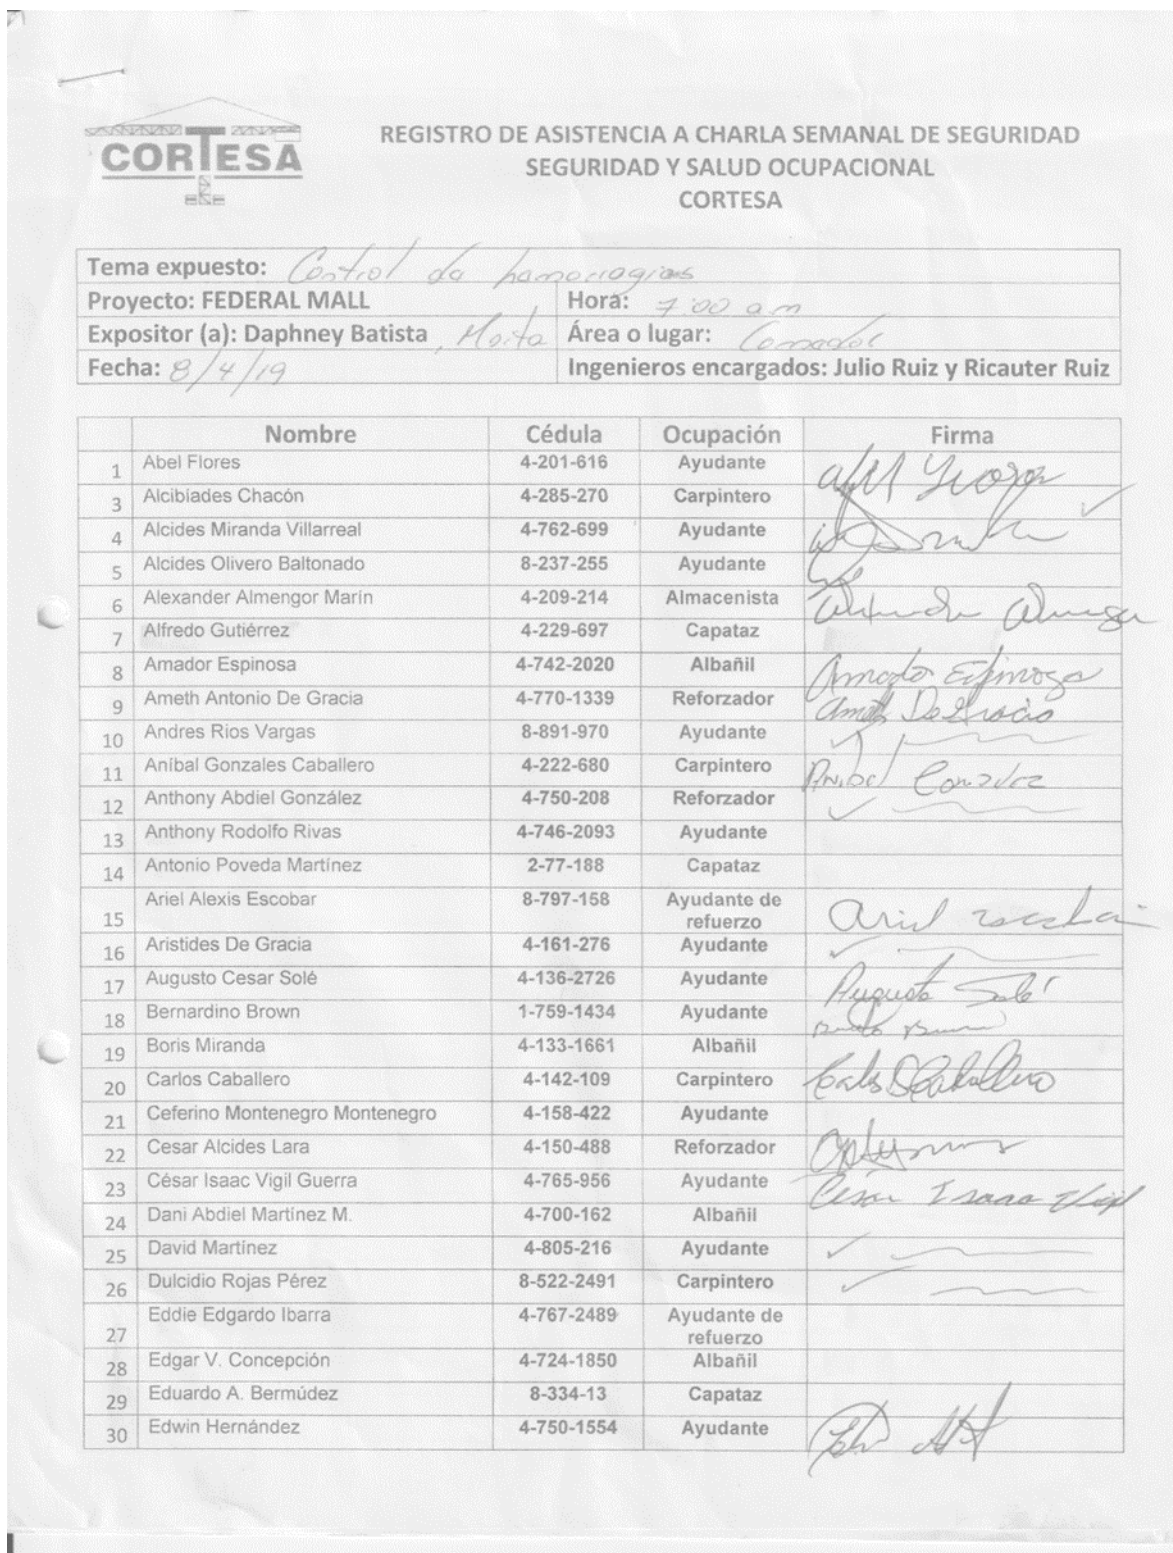 CORTESA
REGISTRO DE ASISTENCIA A CHARLA SEMANAL DE SEGURIDAD
SEGURIDAD Y SALUD OCUPACIONAL
CORTESA
Tema expuesto: Control de hemorragias
Proyecto: FEDERAL MALL Hora: 7:00 am
Expositor (a): Daphney Batista, Área o lugar: Comedor
Fecha: 8/4/19 Ingenieros encargados: Julio Ruiz y Ricauter Ruiz
Nombre Cédula Ocupación Firma
1 Abel Flores 4-201-616 Ayudante
3 Alcibiades Chacón 4-285-270 Carpintero ✓
4 Alcides Miranda Villarreal 4-762-699 Ayudante
5 Alcides Olivero Baltonado 8-237-255 Ayudante
6 Alexander Almengor Marin 4-209-214 Almacenista
7 Alfredo Gutiérrez 4-229-697 Capataz
8 Amador Espinosa 4-742-2020 Albañil Amador Espinoza
9 Ameth Antonio De Gracia 4-770-1339 Reforzador Ameth De Gracia
10 Andres Rios Vargas 8-891-970 Ayudante ✓
11 Aníbal Gonzales Caballero 4-222-680 Carpintero Anibal Gonzalez
12 Anthony Abdiel González 4-750-208 Reforzador ✓
13 Anthony Rodolfo Rivas 4-746-2093 Ayudante
14 Antonio Poveda Martínez 2-77-188 Capataz
15 Ariel Alexis Escobar 8-797-158 Ayudante de
refuerzo Ariel
16 Aristides De Gracia 4-161-276 Ayudante ✓
17 Augusto Cesar Solé 4-136-2726 Ayudante Augusto Solé
18 Bernardino Brown 1-759-1434 Ayudante
19 Boris Miranda 4-133-1661 Albañil
20 Carlos Caballero 4-142-109 Carpintero Carlos Caballero
21 Ceferino Montenegro Montenegro 4-158-422 Ayudante
22 Cesar Alcides Lara 4-150-488 Reforzador
23 César Isaac Vigil Guerra 4-765-956 Ayudante César Isaac Vigil
24 Dani Abdiel Martínez M. 4-700-162 Albañil
25 David Martínez 4-805-216 Ayudante ✓
26 Dulcidio Rojas Pérez 8-522-2491 Carpintero ✓
27 Eddie Edgardo Ibarra 4-767-2489 Ayudante de
refuerzo
28 Edgar V. Concepción 4-724-1850 Albañil
29 Eduardo A. Bermúdez 8-334-13 Capataz
30 Edwin Hernández 4-750-1554 Ayudante